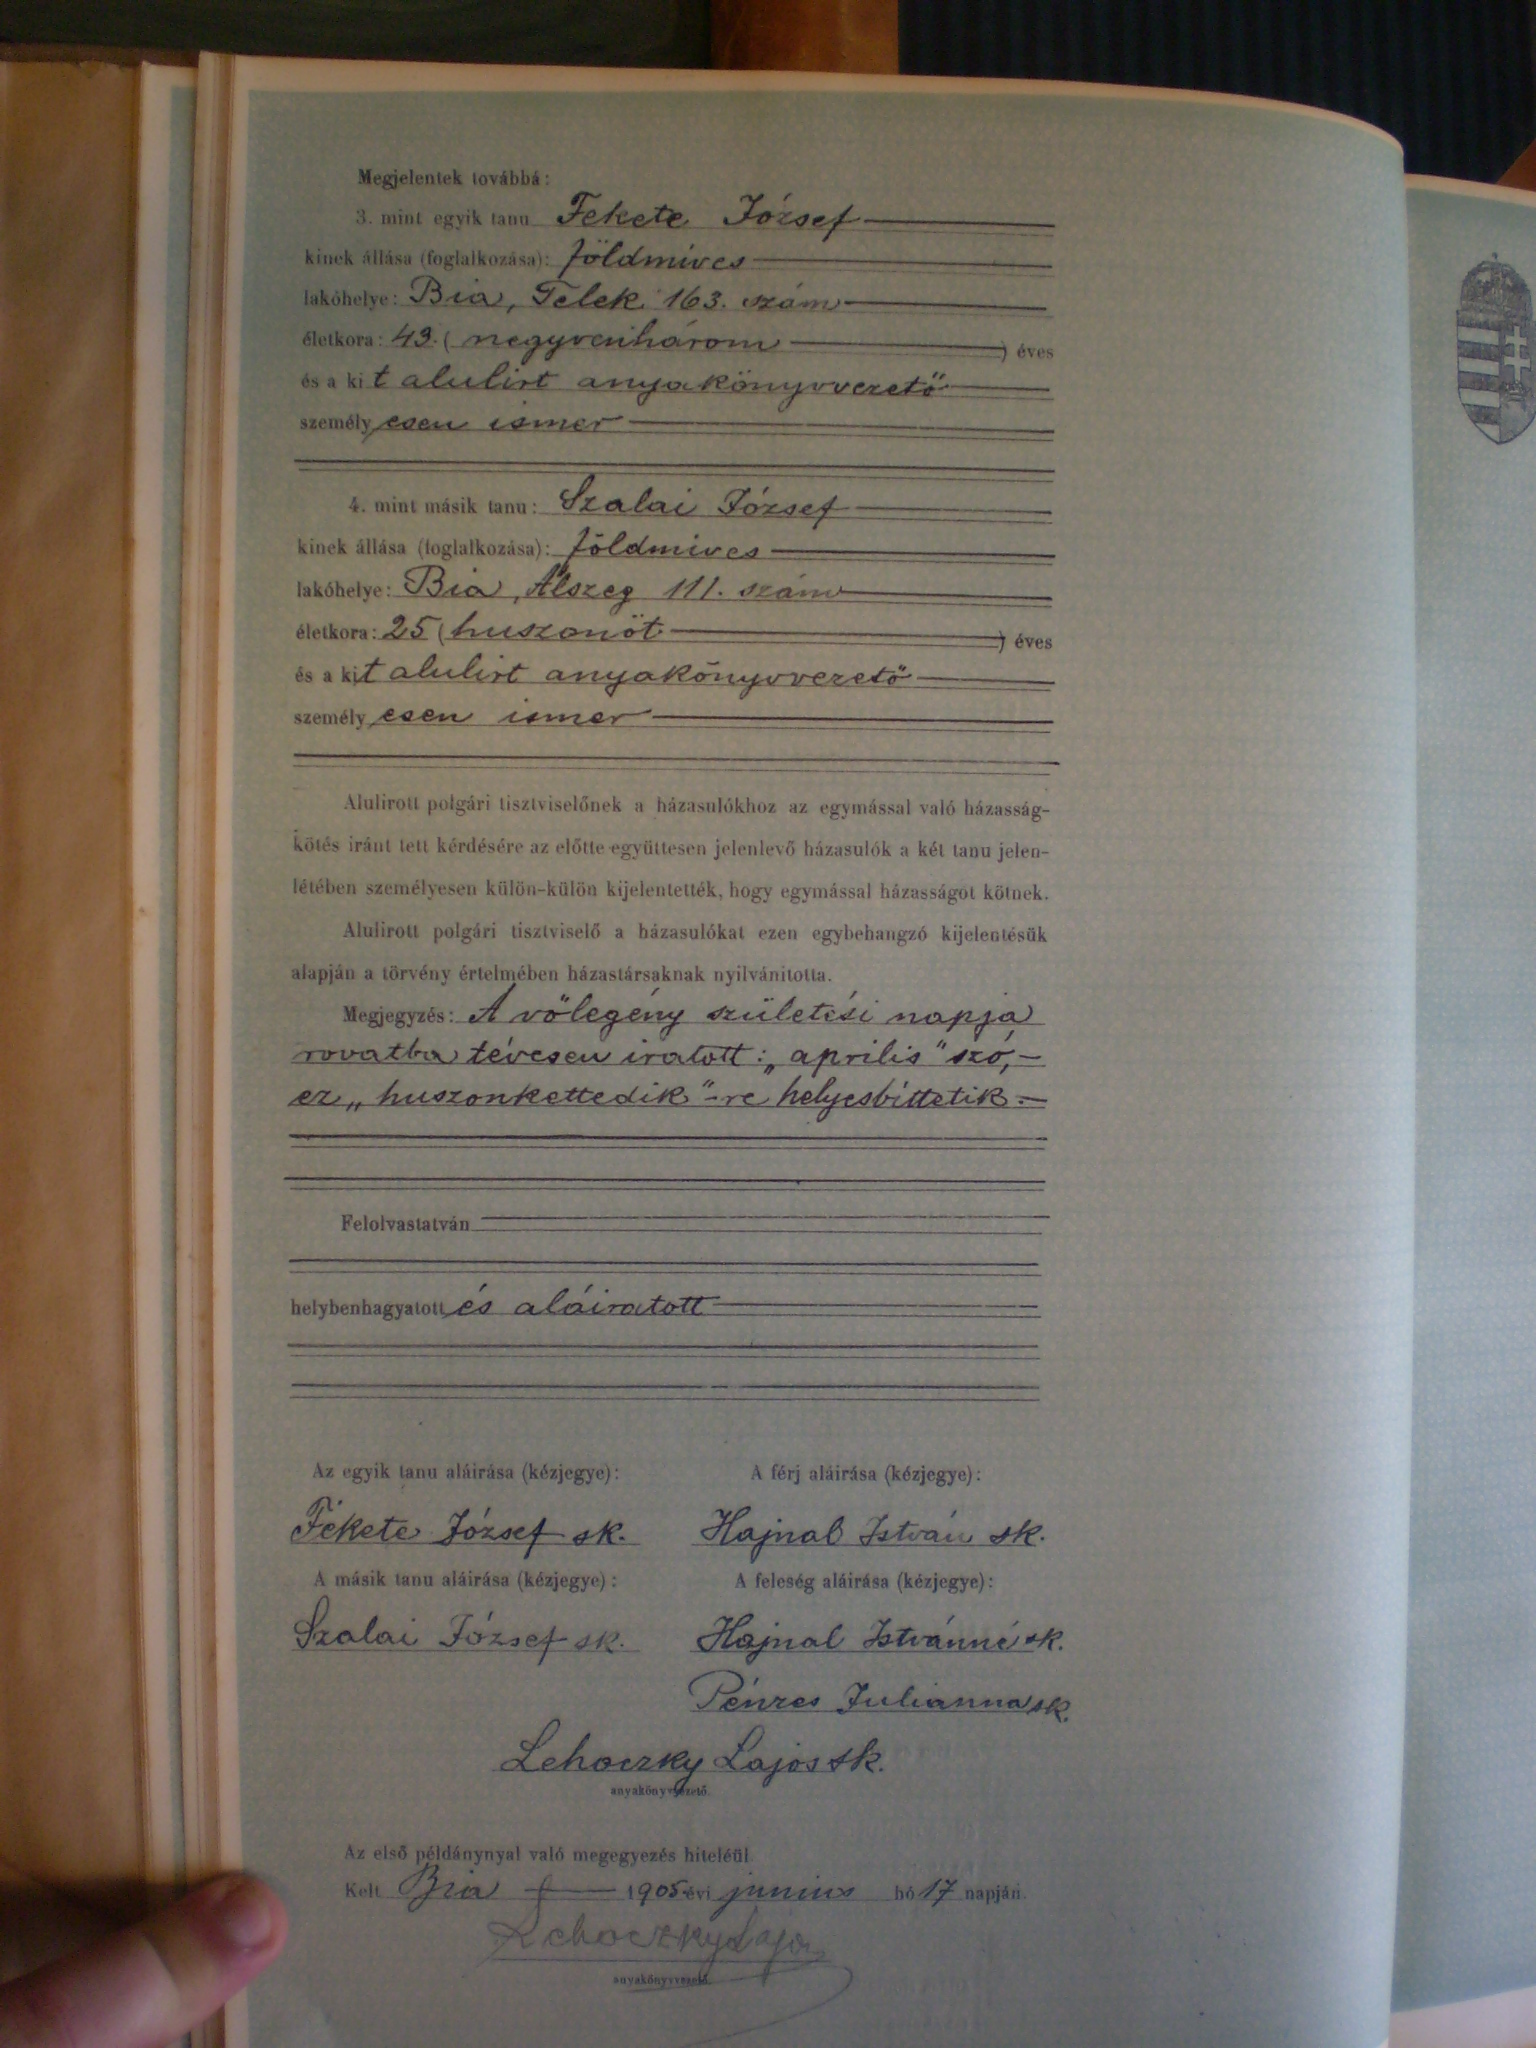 Megjelentek továbbá:
3. mint egyik tanu Fekete József
kinek állása (foglalkozása): földmives
lakóhelye: Bia, Telek 163. szám
életkora: 43. (negyvenhárom) éves
és a kit alulirt anyakönyvvezető
személyesen ismer
4. mint másik tanu: Szalai József
kinek állása (foglalkozása): földmives
lakóhelye: Bia, Alszeg 111. szám
életkora: 25 (huszonöt) éves
és a kit alulirt anyakönyvvezető
személyesen ismer
Alulirott polgári tisztviselőnek a házasulókhoz az egymással való házasság-
kötés iránt tett kérdésére az előtte együttesen jelenlevő házasulók a két tanu jelen-
létében személyesen külön-külön kijelentették, hogy egymással házasságot kötnek.
Alulirott polgári tisztviselő a házasulókat ezen egybehangzó kijelentésük
alapján a törvény értelmében házastársaknak nyilvánitotta.
Megjegyzés: A völegény születési napja
rovatba tévesen iratott: „aprilis" szó,
ez „huszonkettedik"-re helyesbittetik.
Felolvastatván
helybenhagyatott és aláiratott
Az egyik tanu aláirása (kézjegye): A férj aláirása (kézjegye):
Fekete József sk. Hajnal István sk.
A másik tanu aláirása (kézjegye): A feleség aláirása (kézjegye):
Szalai József sk. Hajnal Istvánné sk.
Pénzes Julianna sk.
Lehoczky Lajos sk.
anyakönyvvezető.
Az első példánynyal való megegyezés hiteléül.
Kelt Bia 1905 évi junius hó 17 napján.
Lehoczky Lajos
anyakönyvvezető.